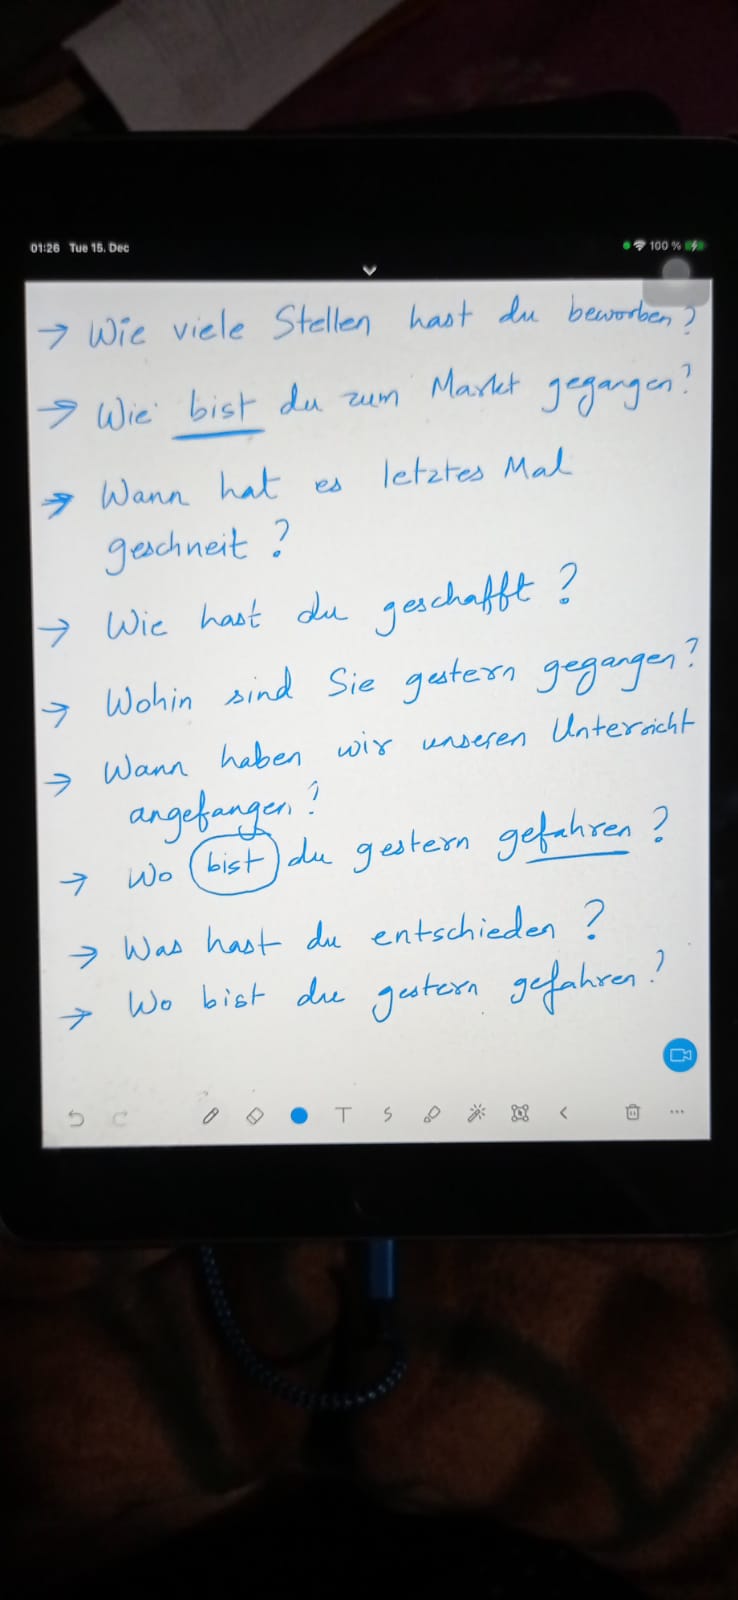 01:26 Tue 15. Dec 100 %
→ Wie viele Stellen hast du beworben?
→ Wie bist du zum Markt gegangen?
→ Wann hat es letztes Mal
geschneit?
→ Wie hast du geschafft?
→ Wohin sind Sie gestern gegangen?
→ Wann haben wir unseren Unterricht
angefangen?
→ Wo bist du gestern gefahren?
→ Was hast du entschieden?
→ Wo bist du gestern gefahren?
T S